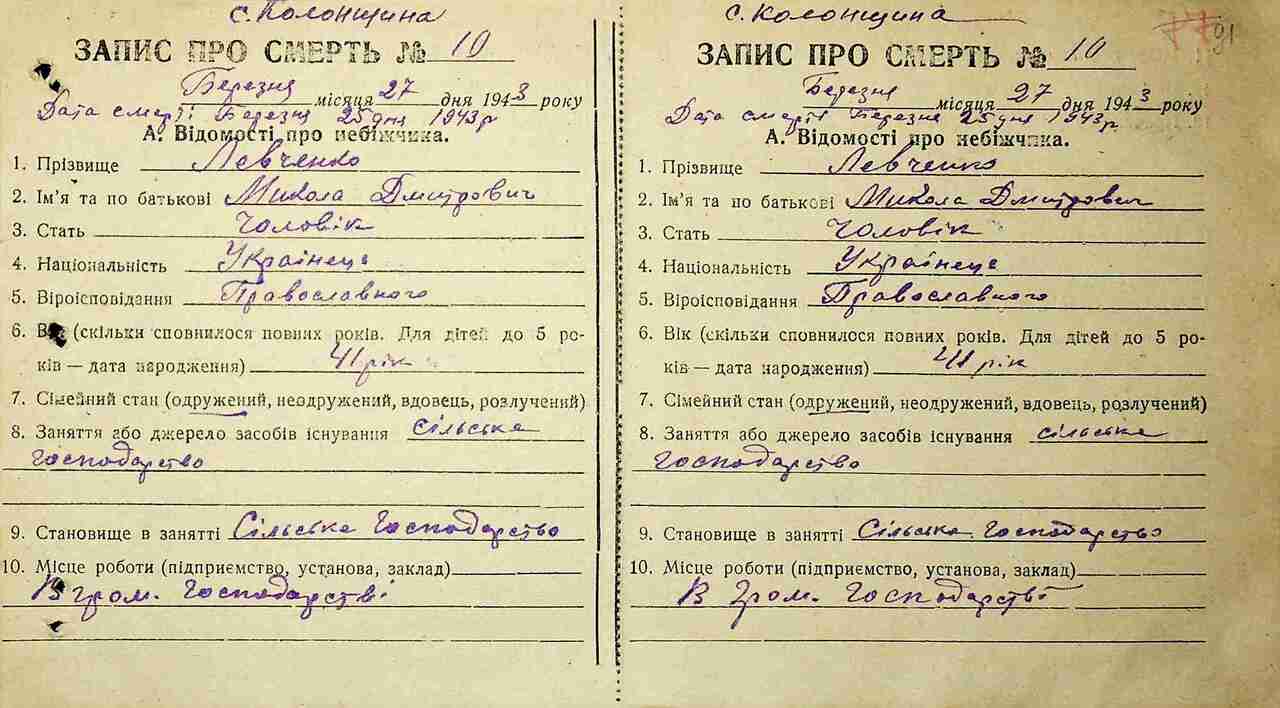 с. Колонщина
ЗАПИС ПРО СМЕРТЬ № 10
Березня місяця 27 дня 1943 року
Дата смерті Березня 25 дня 1943 р
А. Відомості про небіжчика.
1. Прізвище Левченко
2. Ім'я та по батькові Микола Дмитрович
3. Стать Чоловік
4. Національність Українець
5. Віроісповідання Православного
6. Вік (скільки сповнилося повних років. Для дітей до 5 ро-
ків — дата народження) 41 рік
7. Сімейний стан (одружений, неодружений, вдовець, розлучений)
8. Заняття або джерело засобів існування Сільське
господарство
9. Становище в занятті Сільське Господарство
10. Місце роботи (підприємство, установа, заклад)
В гром. Господарстві
с. Колонщина
91
ЗАПИС ПРО СМЕРТЬ № 10
Березня місяця 27 дня 1943 року
Дата смерті Березня 25 дня 1943 р
А. Відомості про небіжчика.
1. Прізвище Левченко
2. Ім'я та по батькові Микола Дмитрович
3. Стать Чоловік
4. Національність Українець
5. Віроісповідання Православного
6. Вік (скільки сповнилося повних років. Для дітей до 5 ро-
ків — дата народження) 41 рік
7. Сімейний стан (одружений, неодружений, вдовець, розлучений)
8. Заняття або джерело засобів існування сільське
господарство
9. Становище в занятті Сільське Господарство
10. Місце роботи (підприємство, установа, заклад)
В Гром. Господарстві